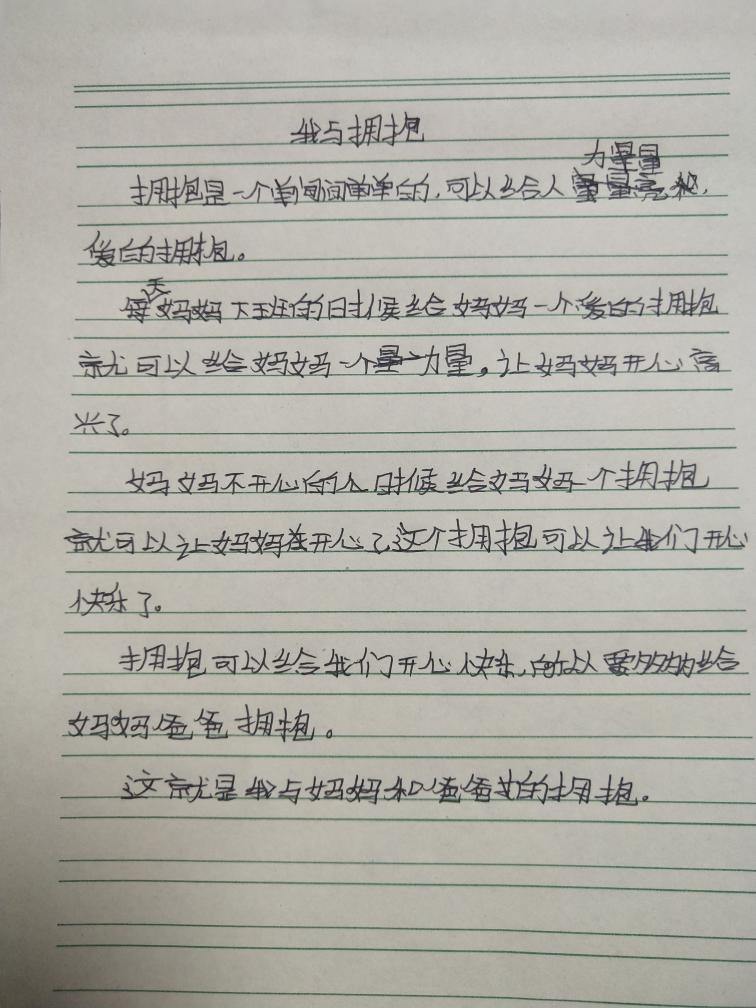 我与拥抱
拥抱是一个简简单单的，可以给人力量和，
爱的拥抱。
每天妈妈下班的时候给妈妈一个爱的拥抱
就可以给妈妈一个力量。让妈妈开心高
兴了。
妈妈不开心的时候给妈妈一个拥抱
就可以让妈妈开心了，这个拥抱可以让我们开心
快乐了。
拥抱可以给我们开心快乐，所以要多多的给
妈妈爸爸拥抱。
这就是我与妈妈和爸爸的拥抱。